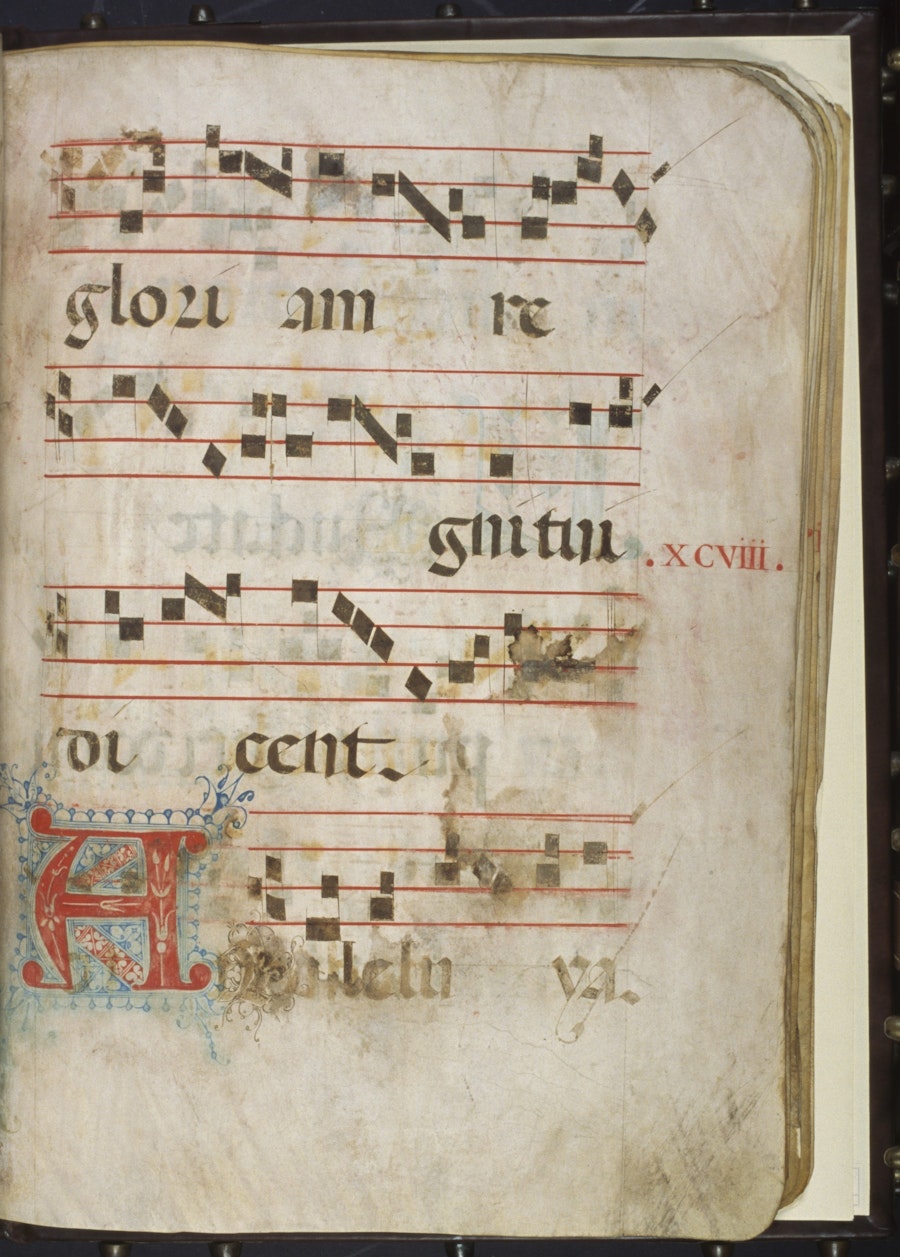 glori am re
gni tui
.xcviii.
di cent.
Alleluya.